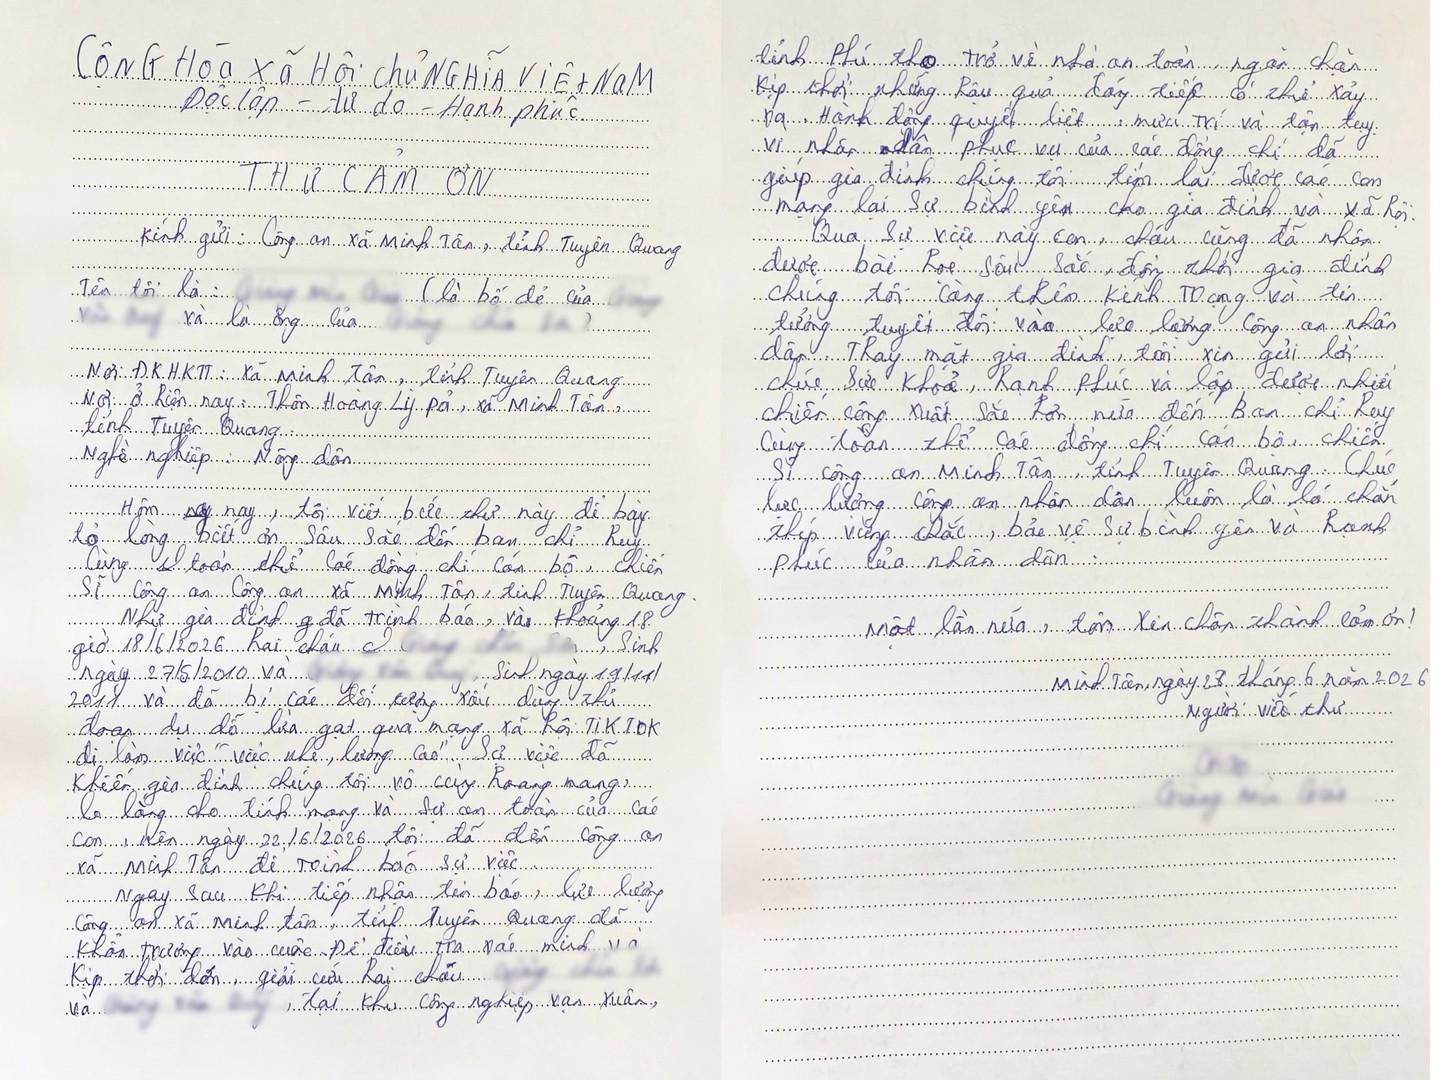 CỘNG HÓA XÃ HỘI CHỦ NGHĨA VIỆT NAM
Độc lập - tự do - Hạnh phúc
THƯ CẢM ƠN
Kính gửi: Công an xã Minh Tân, tỉnh Tuyên Quang
Tên tôi là: (là bố đẻ của
và là ông của )
Nơi ĐKHKTT: xã Minh Tân, tỉnh Tuyên Quang
Nơi ở hiện nay: Thôn Hoàng Lỳ Pả, xã Minh Tân,
tỉnh Tuyên Quang.
Nghề nghiệp: Nông dân
Hôm nay, tôi viết bức thư này để bày
tỏ lòng biết ơn sâu sắc đến ban chỉ huy
cùng toàn thể các đồng chí cán bộ, chiến
sĩ công an Công an xã Minh Tân, tỉnh Tuyên Quang.
Như gia đình đã trình báo, vào khoảng 18
giờ 18/6/2026 hai cháu , sinh
ngày 27/5/2010 và , sinh ngày 19/11/
2011 và đã bị các đối tượng xấu dùng thủ
đoạn dụ dỗ lừa gạt qua mạng xã hội TIKTOK
đi làm việc "việc nhẹ, lương cao" Sự việc đã
khiến gia đình chúng tôi vô cùng hoang mang,
lo lắng cho tính mạng và sự an toàn của các
con, nên ngày 22/6/2026 tôi đã đến công an
xã Minh Tân để trình báo sự việc.
Ngay sau khi tiếp nhận tin báo, lực lượng
công an xã Minh tân, tỉnh Tuyên Quang đã
khẩn trương vào cuộc để điều tra xác minh và
kịp thời đón, giải cứu hai cháu
và , tại khu công nghiệp vạn xuân,
tỉnh Phú thọ trở về nhà an toàn, ngăn chặn
kịp thời những hậu quả đáng tiếc có thể xảy
ra. Hành động quyết liệt, mưu trí và tận tụy
vì nhân dân phục vụ của các đồng chí đã
giúp gia đình chúng tôi tìm lại được các con
mang lại sự bình yên cho gia đình và xã hội.
Qua sự việc này con, cháu cũng đã nhận
được bài học sâu sắc, đồng thời gia đình
chúng tôi càng thêm kính trọng và tin
tưởng tuyệt đối vào lực lượng công an nhân
dân. Thay mặt gia đình, tôi xin gửi lời
chúc sức khoẻ, hạnh phúc và lập được nhiều
chiến công xuất sắc hơn nữa đến ban chỉ huy
cùng toàn thể các đồng chí cán bộ, chiến
sĩ công an Minh Tân, tỉnh Tuyên Quang. Chúc
lực lượng công an nhân dân luôn là lá chắn
thép vững chắc, bảo vệ sự bình yên và hạnh
phúc của nhân dân.
Một lần nữa, tôi xin chân thành cảm ơn!
Minh Tân, ngày 23 tháng 6 năm 2026
Người viết thư